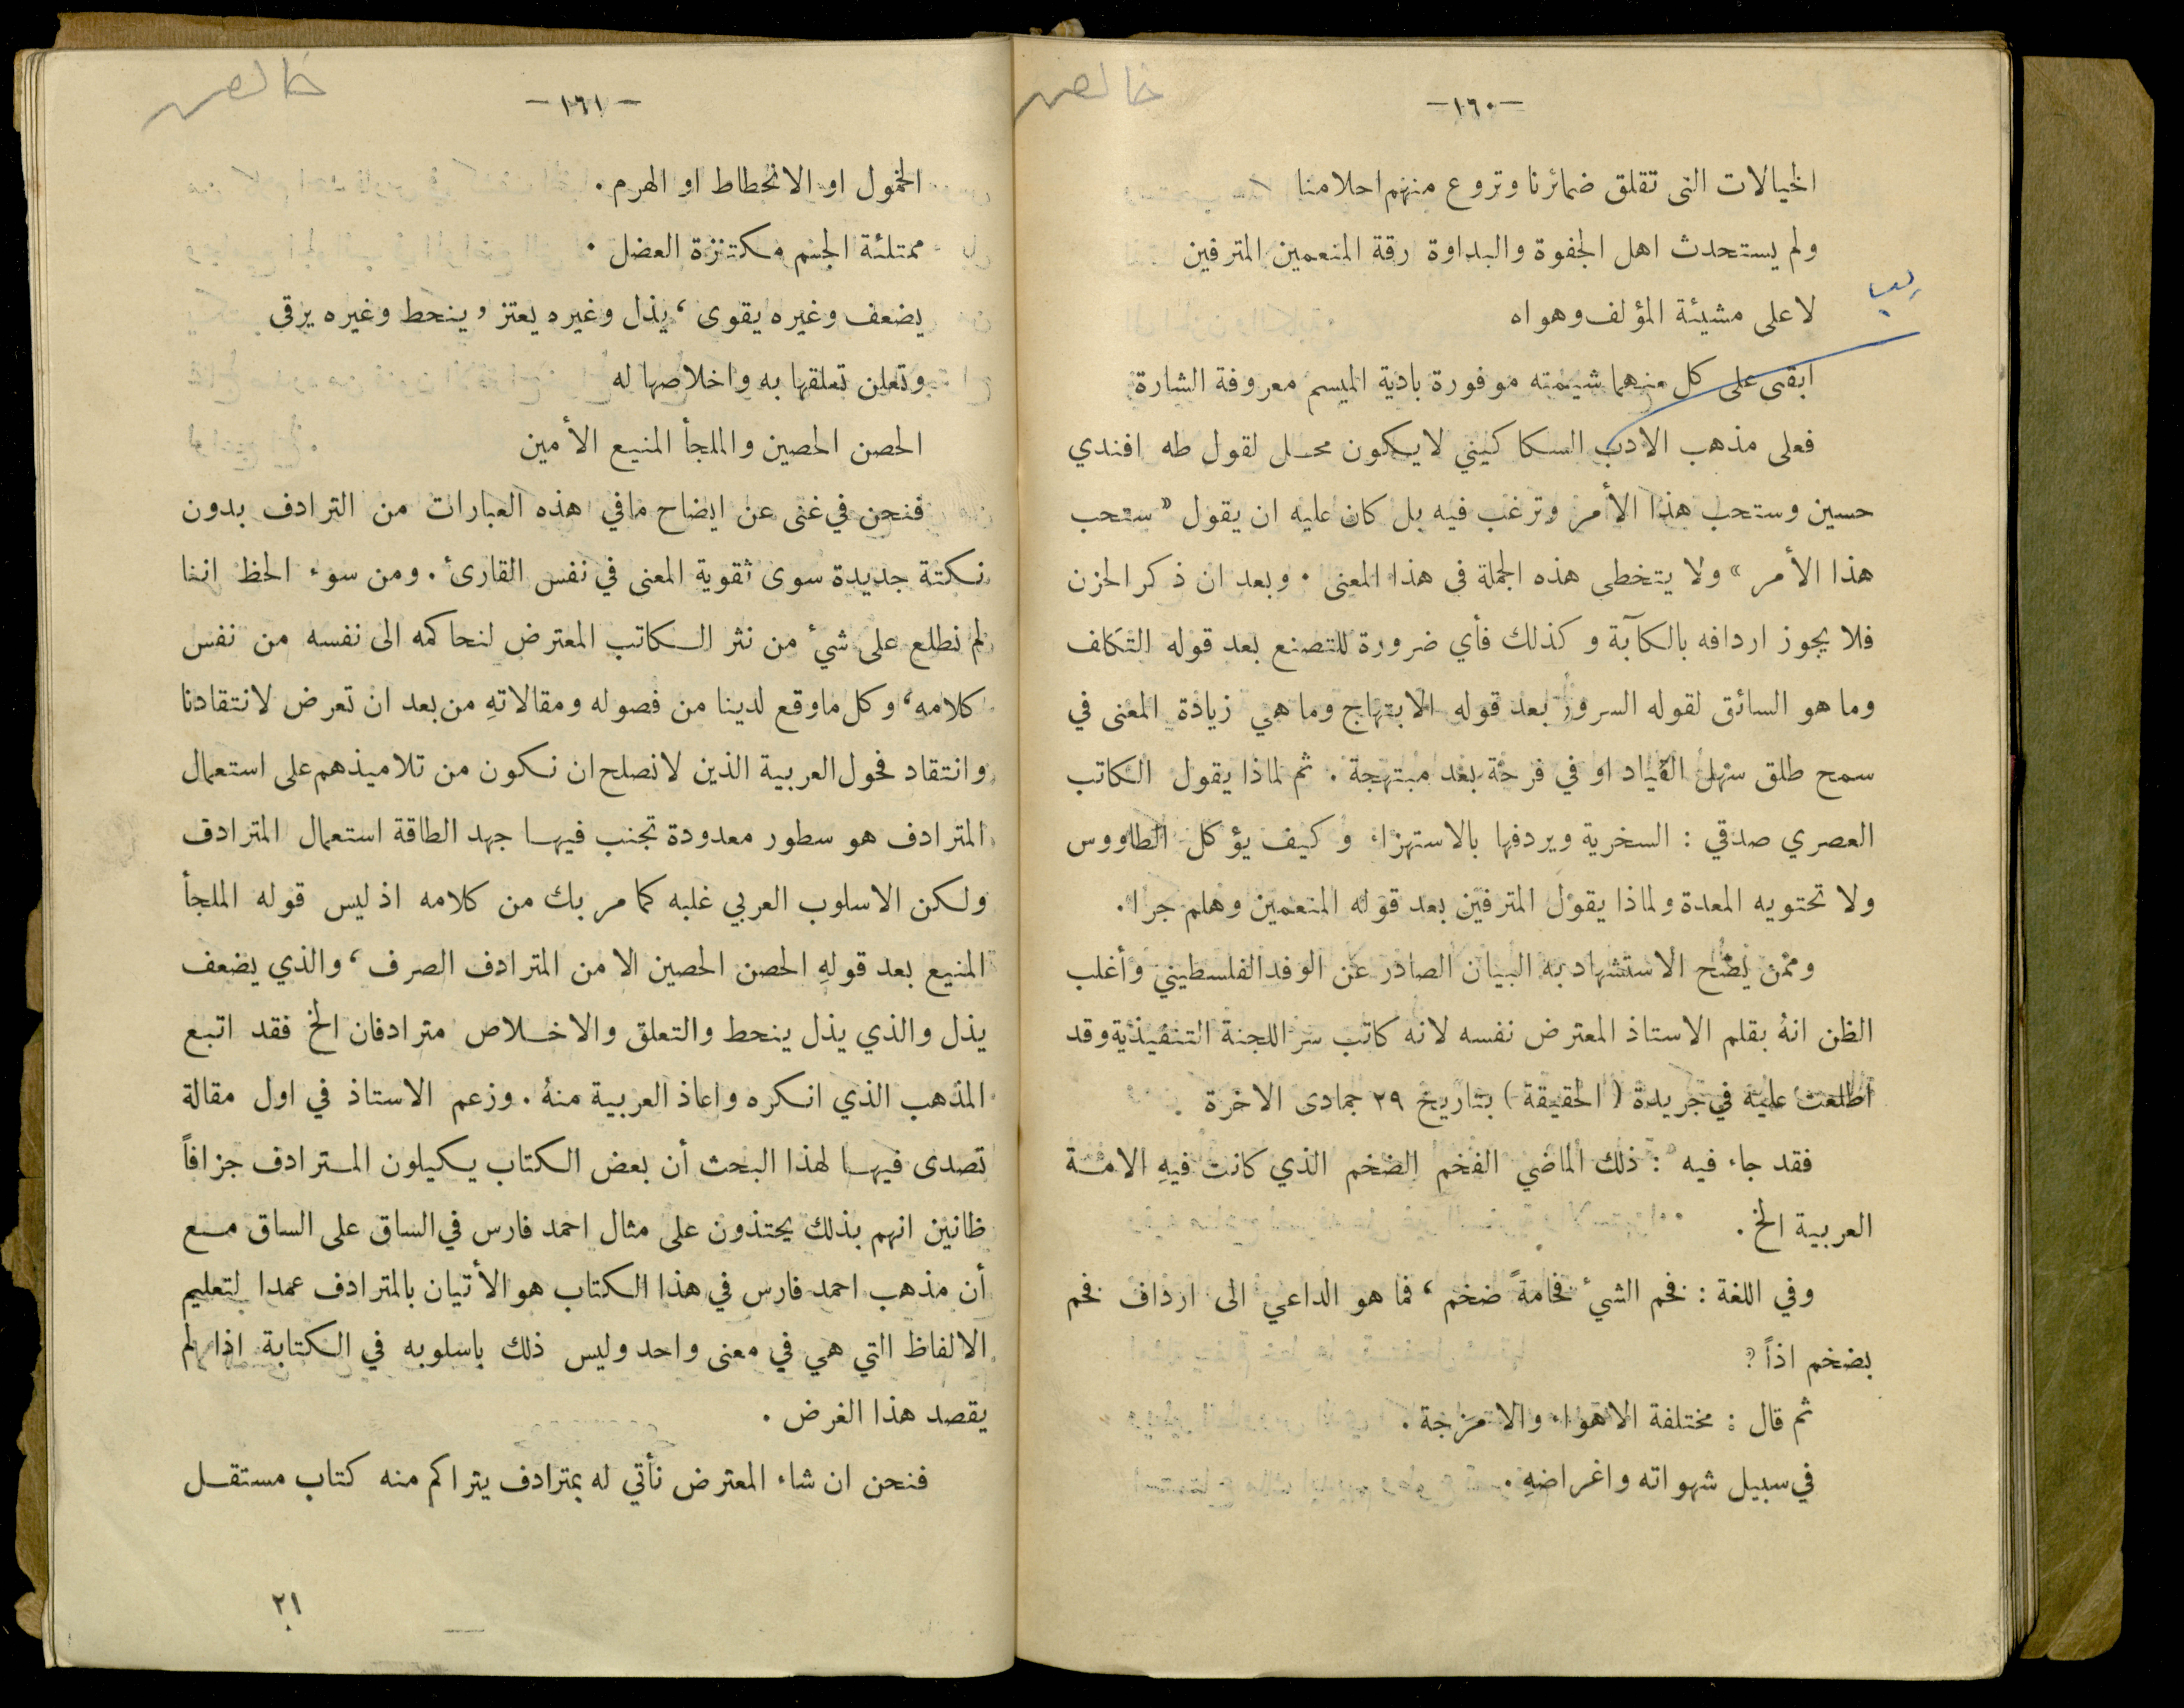 خالص
-١٦٠-
الخيالات التى تقلق ضمائرنا وتروع منهم احلامنا
ولم يستحدث اهل الجفوة والبداوة رقة المنعمين المترفين
لا على مشيئة المؤلف وهواه
ابقى على كل منهما شيمته موفورة بادية الميسم معروفة الشارة
فعلى مذهب الادب السكاكيني لايكون محل لقول طه افندي
حسين وستحب هذا الأمر وترغب فيه بل كان عليه ان يقول «ستحب
هذا الأمر» ولا يتخطى هذه الجملة فى هذا المعنى . وبعد ان ذكر الحزن
فلا يجوز اردافه بالكآبة وكذلك فأي ضرورة للتصنع بعد قوله التكلف
وما هو السائق لقوله السرور بعد قوله الابتهاج وما هي زيادة المعنى في
سمح طلق سهل القياد او في فرحة بعد مبتهجة . ثم لماذا يقول الكاتب
العصري صدقي : السخرية ويردفها بالاستهزاء وكيف يؤكل الطاووس
ولا تحتويه المعدة ولماذا يقول المترفين بعد قوله المنعمين وهلم جرا .
وممن يصح الاستشهاد به البيان الصادر عن الوفد الفلسطيني وأغلب
الظن انهُ بقلم الاستاذ المعترض نفسه لانه كاتب سر اللجنة التنفيذية وقد
اطلعت عليه في جريدة ( الحقيقة ) بتاريخ ٢٩ جمادى الاخرة .
فقد جاء فيه : ذلك الماضي الفخم الضخم الذي كانت فيهِ الامة
العربية الخ .
وفي اللغة : فخم الشيء فخامةً ضخم ، فما هو الداعي الى ارداف فخم
بضخم اذاً ؟
ثم قال : مختلفة الاهواء والامزجة .
في سبيل شهواته واغراضهِ .
خالص
-١٦١-
الخمول او الانحطاط او الهرم .
ممتلئة الجسم مكتنزة العضل .
يضعف وغيره يقوى ، يذل وغيره يعتز وينحط وغيره يرقى
وتعلن تعلقها به واخلاصها له
الحصن الحصين والملجأ المنيع الأمين
فنحن في غنى عن ايضاح مافي هذه العبارات من الترادف بدون
نكتة جديدة سوى تقوية المعنى في نفس القارئ . ومن سوء الحظ اننا
لم نطلع على شيء من نثر الكاتب المعترض لنحاكمه الى نفسه من نفس
كلامه ، وكل ماوقع لدينا من فصوله ومقالاتهِ من بعد ان تعرض لانتقادنا
وانتقاد فحول العربية الذين لانصلح ان نكون من تلاميذهم على استعمال
المترادف هو سطور معدودة تجنب فيها جهد الطاقة استعمال المترادف
ولكن الاسلوب العربي غلبه كما مر بك من كلامه اذ ليس قوله الملجأ
المنيع بعد قولهِ الحصن الحصين الا من المترادف الصرف ، والذي يضعف
يذل والذي يذل ينحط والتعلق والاخلاص مترادفان الخ فقد اتبع
المذهب الذي انكره واعاذ العربية منهُ . وزعم الاستاذ في اول مقالة
تصدى فيها لهذا البحث أن بعض الكتاب يكيلون المترادف جزافاً
ظانين انهم بذلك يحتذون على مثال احمد فارس في الساق على الساق مع
أن مذهب احمد فارس في هذا الكتاب هو الأتيان بالمترادف عمدا لتعليم
الالفاظ التي هي في معنى واحد وليس ذلك باسلوبه في الكتابة اذا لم
يقصد هذا الغرض .
فنحن ان شاء المعترض نأتي له بمترادف يتراكم منه كتاب مستقل
٢١